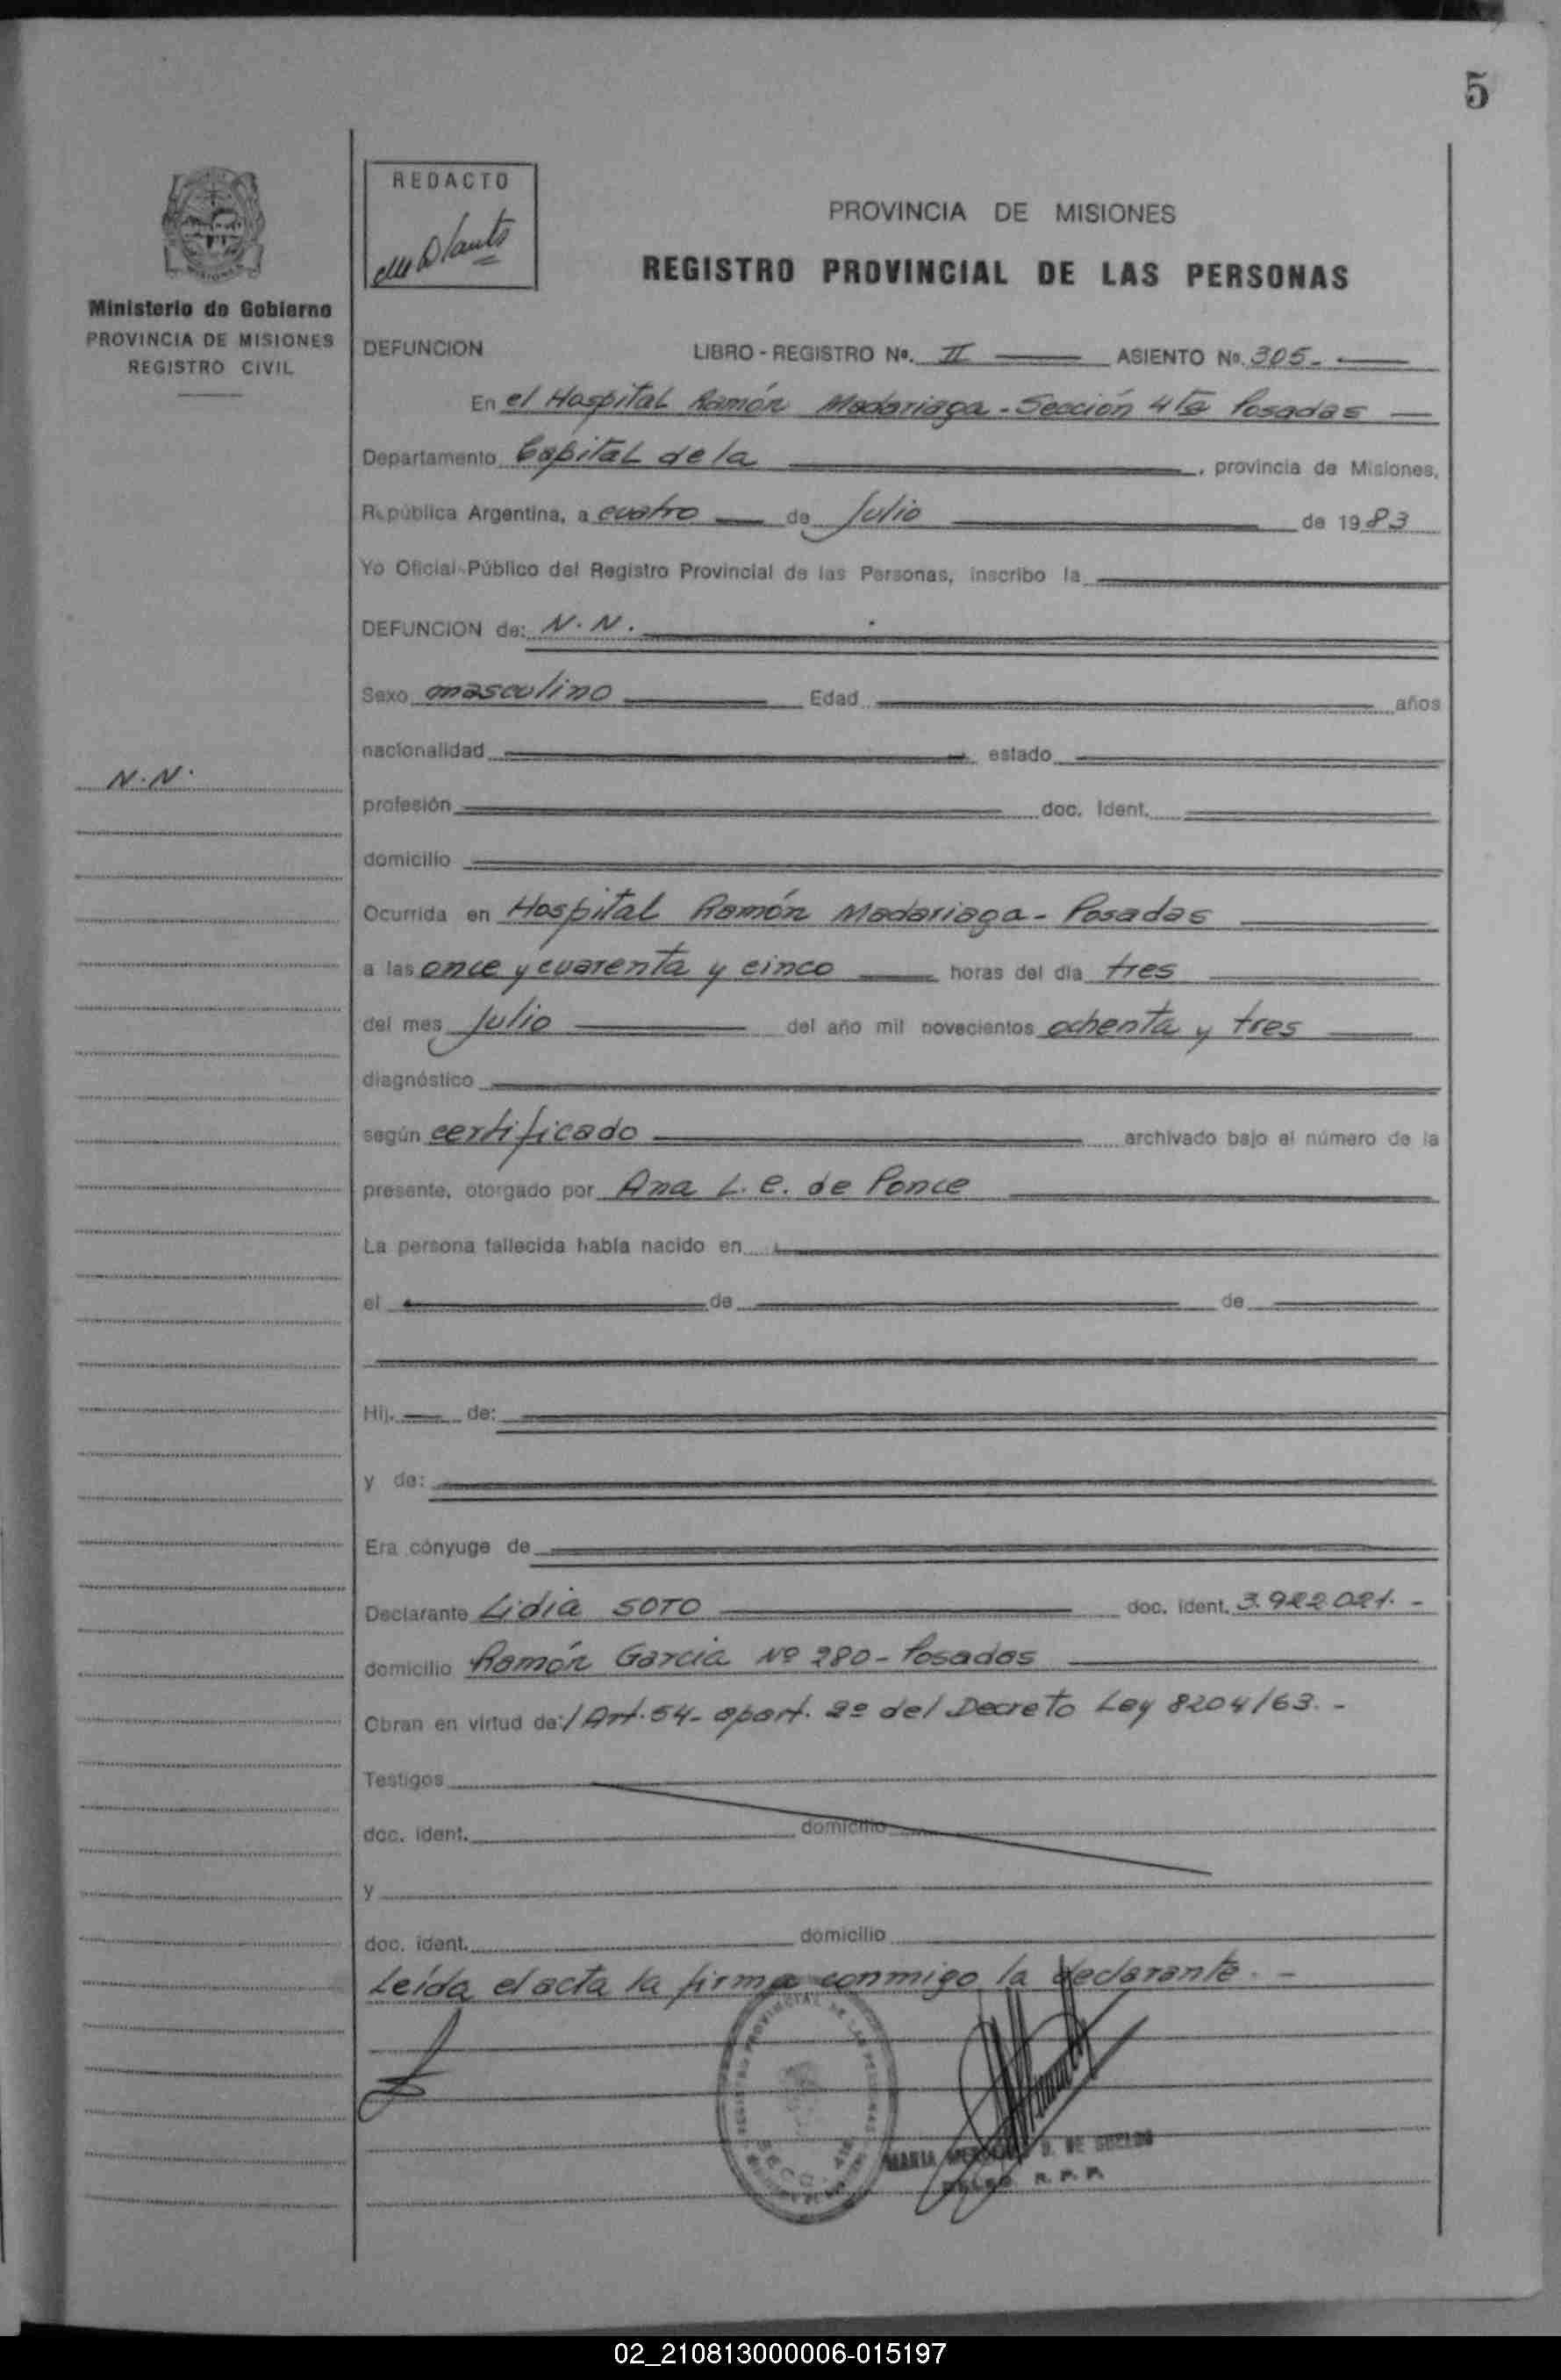 5
REDACTO
PROVINCIA DE MISIONES
REGISTRO PROVINCIAL DE LAS PERSONAS
Ministerio de Gobierno
PROVINCIA DE MISIONES
REGISTRO CIVIL
DEFUNCION LIBRO - REGISTRO Nº. II ASIENTO Nº. 305.-
En el Hospital Ramón Madariaga - Sección 4ta Posadas
Departamento Capital de la , provincia de Misiones,
República Argentina, a cuatro de Julio de 1983
Yo Oficial Público del Registro Provincial de las Personas, inscribo la
DEFUNCION de: N.N.
Sexo masculino Edad años
nacionalidad estado
N.N.
profesión doc. ident.
domicilio
Ocurrida en Hospital Ramón Madariaga - Posadas
a las once y cuarenta y cinco horas del día tres
del mes Julio del año mil novecientos ochenta y tres
diagnóstico
según certificado archivado bajo el número de la
presente, otorgado por Ana L. C. de Ponce
La persona fallecida había nacido en
el de de
Hij. de:
y de:
Era cónyuge de
Declarante Lidia SOTO doc. ident. 3.922.021.-
domicilio Ramón Garcia Nº 280 - Posadas
Obran en virtud de:/ Art. 54- apart. 2º del Decreto Ley 8204/63.-
Testigos
doc. ident. domicilio
y
doc. ident. domicilio
Leída el acta la firma conmigo la declarante.-
REGISTRO PROVINCIAL DE LAS PERSONAS
MARIA D. DE
R. P. P.
02_210813000006-015197